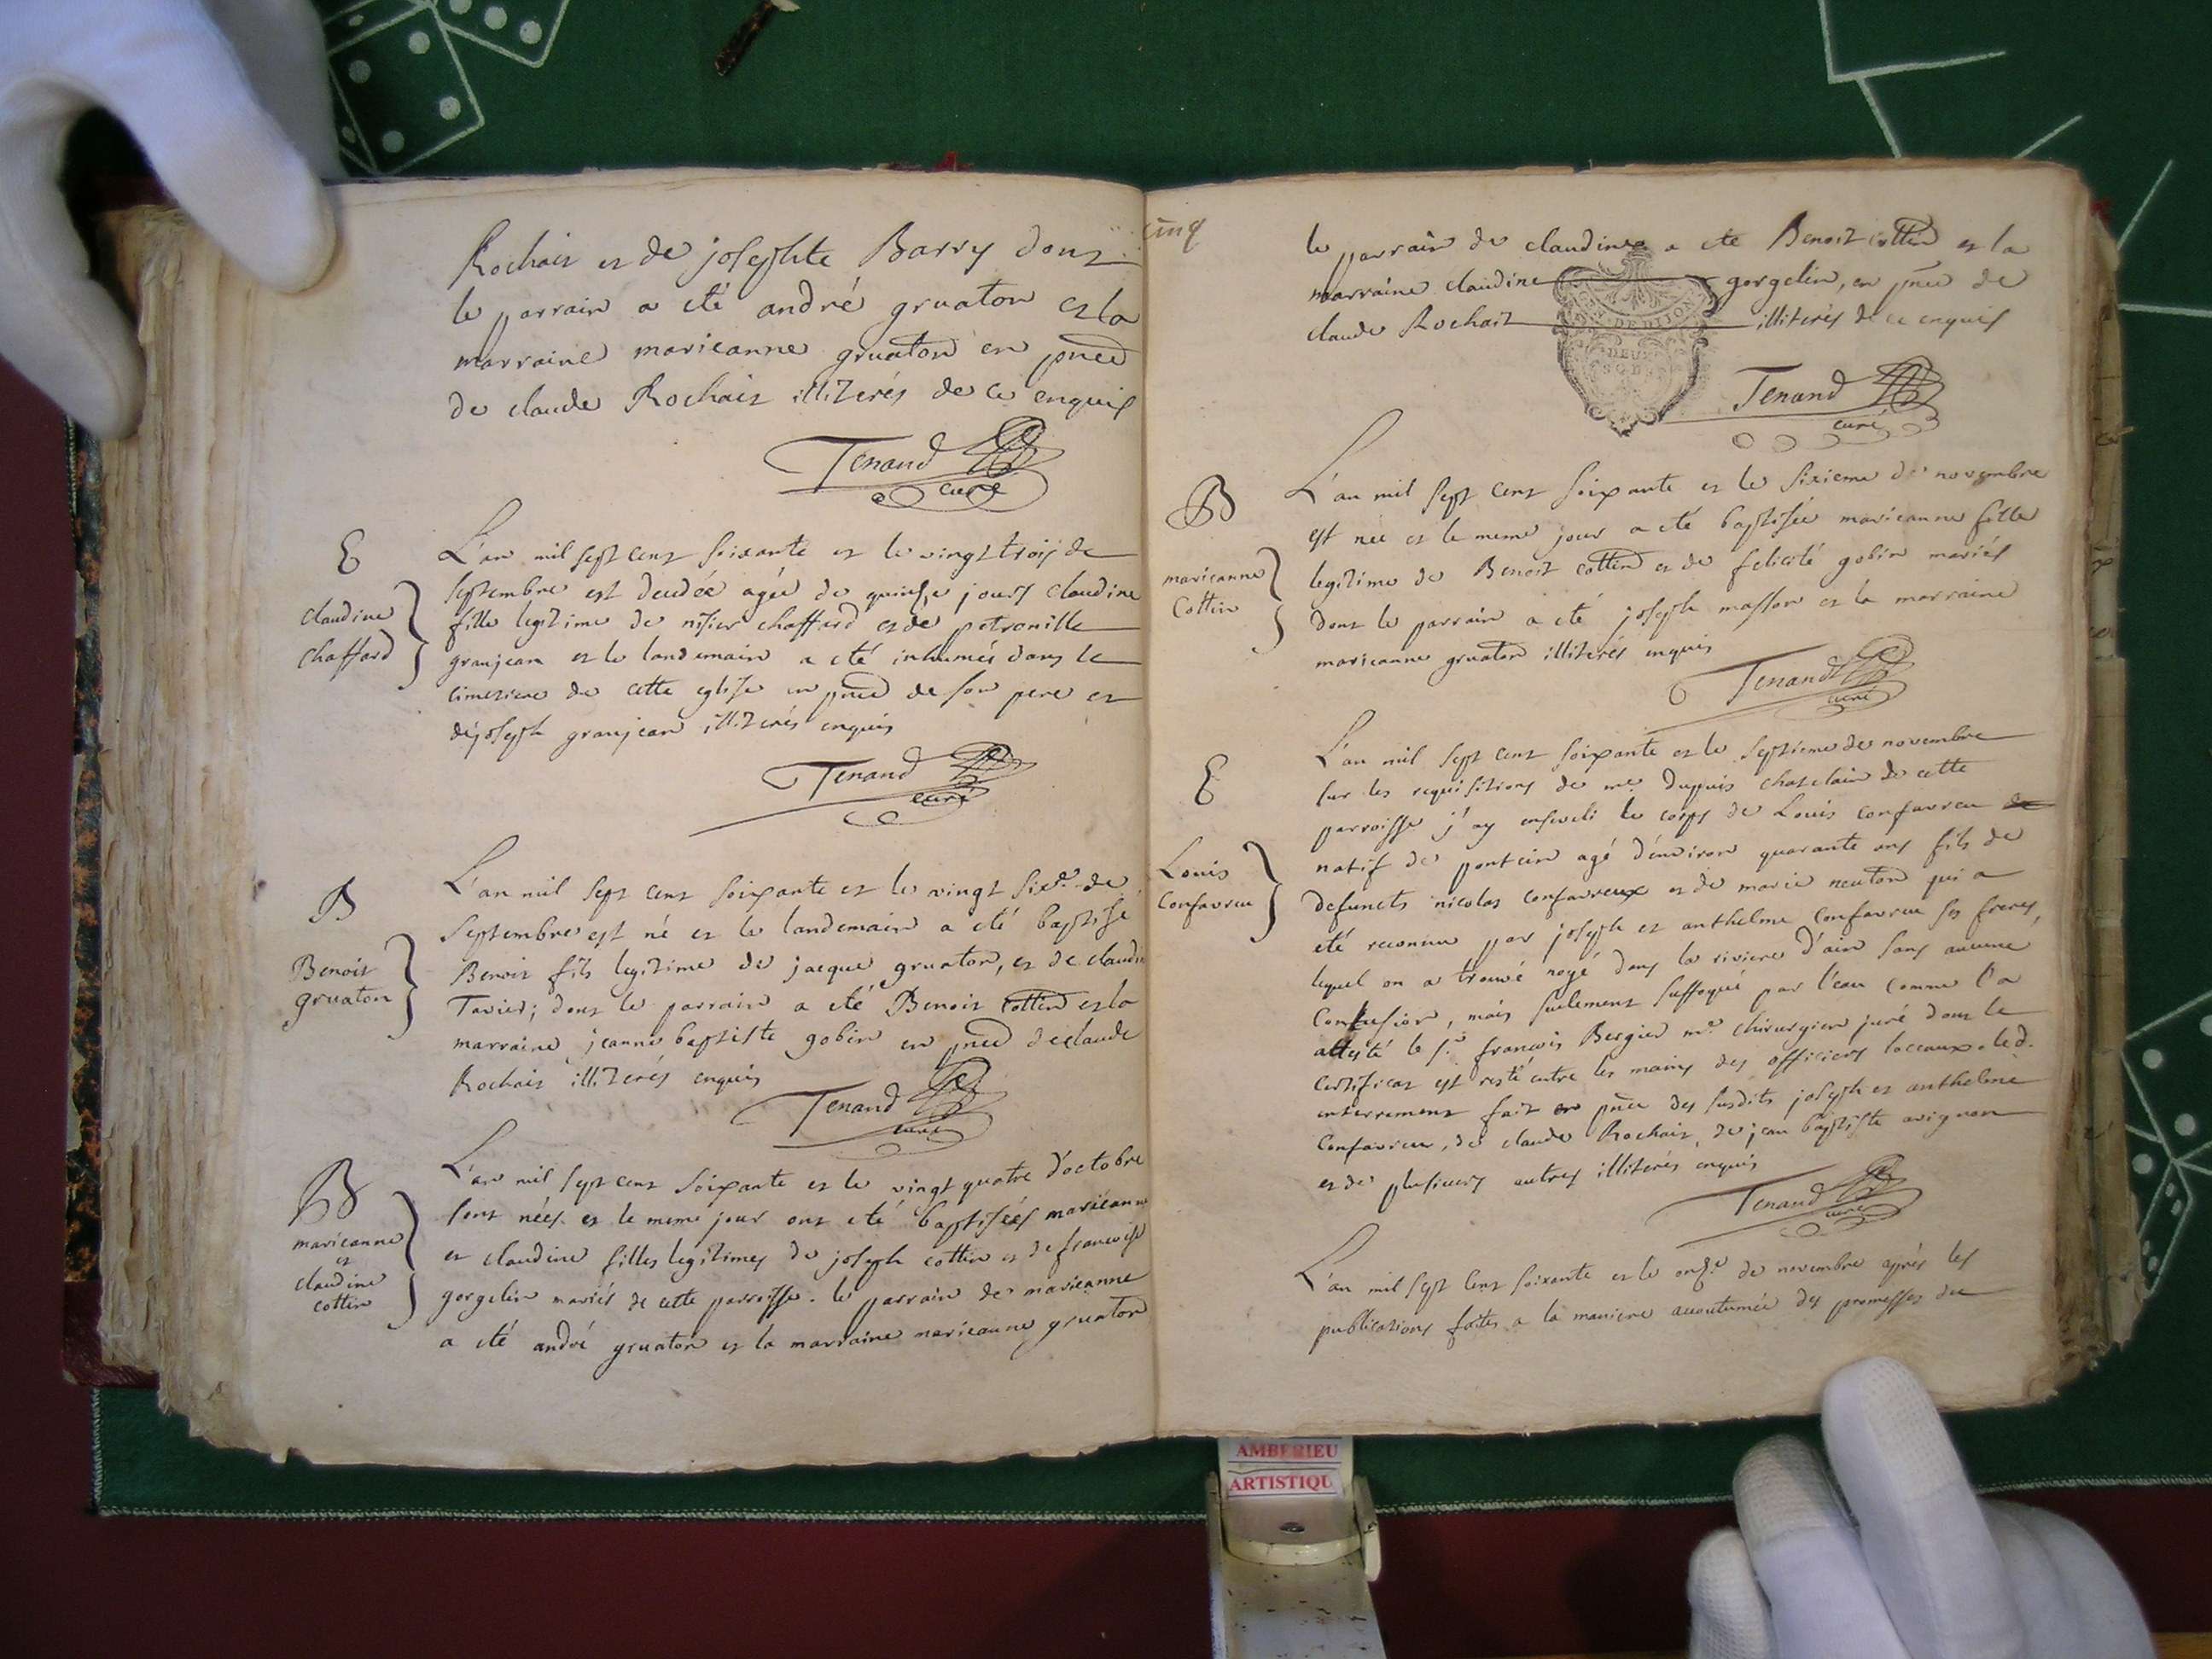 Rochaix et de josephte Barry dont
le parrain a eté andré gruaton et la
marraine marieanne gruaton en pnce
de claude Rochaix illiterés de ce enquis
Tenand
curé
E
claudine
chaffard
L'an mil sept cent soixante et le vingt trois de
septembre est deudée agée de quinse jours claudine
fille legitime de nisier chaffard et de petronille
granjean et le landemain a eté inhumés dans le
cimetiere de cette eglise en pnce de son pere et
de joseph granjean illiterés enquis
Tenand
curé
B
Benoit
gruaton
L'an mil sept cent soixante et le vingt sixe de
septembre est né et le landemain a eté baptisé
Benoit fils legitime de jacque gruaton, et de claudi
Tavier; dont le parrain a eté Benoit cottin et la
marraine jeanne baptiste gobin en pnce de claude
Rochaix illiterés enquis
Tenand
curé
B
marieanne
et
claudine
cottin
L'an mil sept cent soixante et le vingt quatre d'octobre
sont nées et le meme jour ont eté baptisées marieanne
et claudine filles legitimes de joseph cottin et de francoise
gorgelin mariés de cette parroisse. le parrain de marieanne
a eté andré gruaton et la marraine marieanne gruaton
cinq
le parrain de claudine a eté Benoit cottin et la
marraine claudine gorgelin, en pnce de
claude Rochaix illiterés de ce enquis
DE DIJON
DEUX
Tenand
curé
B
marieanne
Cottin
L'an mil sept cent soixante et le sixieme de novembre
est née et le meme jour a eté baptisée marieanne fille
legitime de Benoit cottin et de felicité gobin mariés
dont le parrain a eté joseph masson et la marraine
marieanne gruaton illiterés enquis
Tenand
curé
E
Louis
Confavreu
L'an mil sept cent soixante et le septieme de novembre
sur les requisitions de me Dupuis chatelain de cette
parroisse j'ay enseveli le corps de Louis confavreu
natif de pontcin agé d'environ quarante ans fils de
defuncts nicolas confavreux et de marie neuton qui a
eté reconnu par joseph et anthelme confavreu ses freres,
lequel on a trouvé noyé dans la riviere d'ain sans aucune
Contusion, mais seulement suffoqué par l'eau comme l'a
attesté le sr francois Bergier me chirurgien juré dont le
certificat est resté entre les mains des officiers locaux. led.
enterrement fait en pnce des susdits joseph et anthelme
Confavreu, de claude Rochaix, de jean baptiste avignon
et de plusieurs autres illiterés enquis
Tenand
curé
L'an mil sept cent soixante et le onze de novembre aprés les
publications faites a la maniere accoutumée des promesses de
AMBERIEU
ARTISTIQU